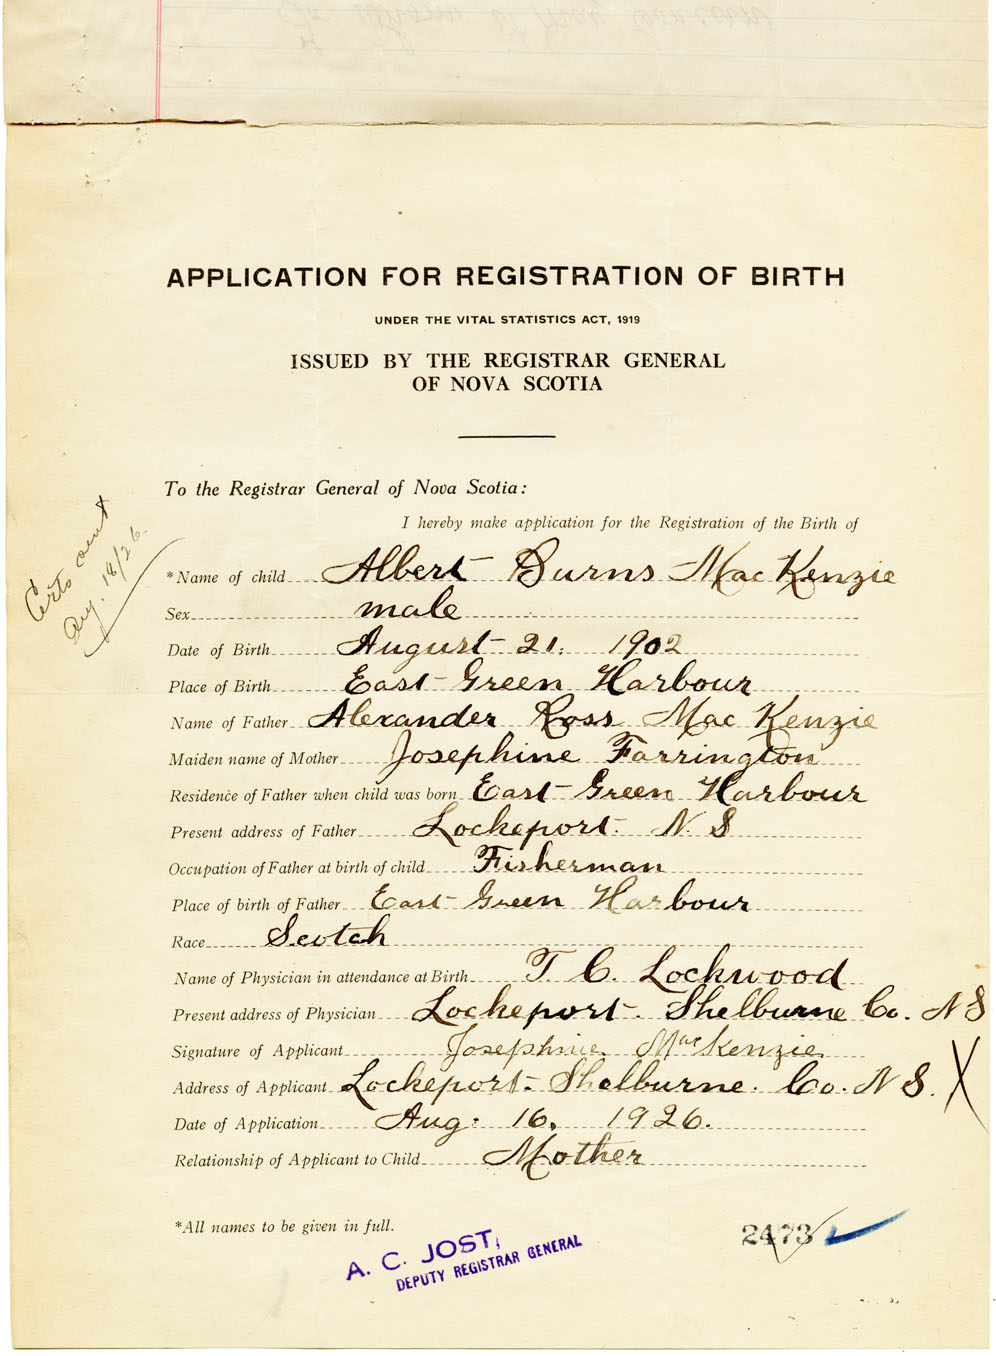 APPLICATION FOR REGISTRATION OF BIRTH
UNDER THE VITAL STATISTICS ACT, 1919
ISSUED BY THE REGISTRAR GENERAL
OF NOVA SCOTIA
To the Registrar General of Nova Scotia:
I hereby make application for the Registration of the Birth of
Certs sent
Aug. 18/26.
*Name of child Albert Burns MacKenzie
Sex male
Date of Birth August 21. 1902
Place of Birth East Green Harbour
Name of Father Alexander Ross MacKenzie
Maiden name of Mother Josephine Farrington
Residence of Father when child was born East Green Harbour
Present address of Father Lockeport. N. S
Occupation of Father at birth of child Fisherman
Place of birth of Father East Green Harbour
Race Scotch
Name of Physician in attendance at Birth T C. Lockwood
Present address of Physician Lockeport. Shelburne Co. N S
Signature of Applicant Josephine MacKenzie
Address of Applicant Lockeport. Shelburne. Co. N S. X
Date of Application Aug: 16, 1926.
Relationship of Applicant to Child Mother
*All names to be given in full.
2473
A. C. JOST,
DEPUTY REGISTRAR GENERAL